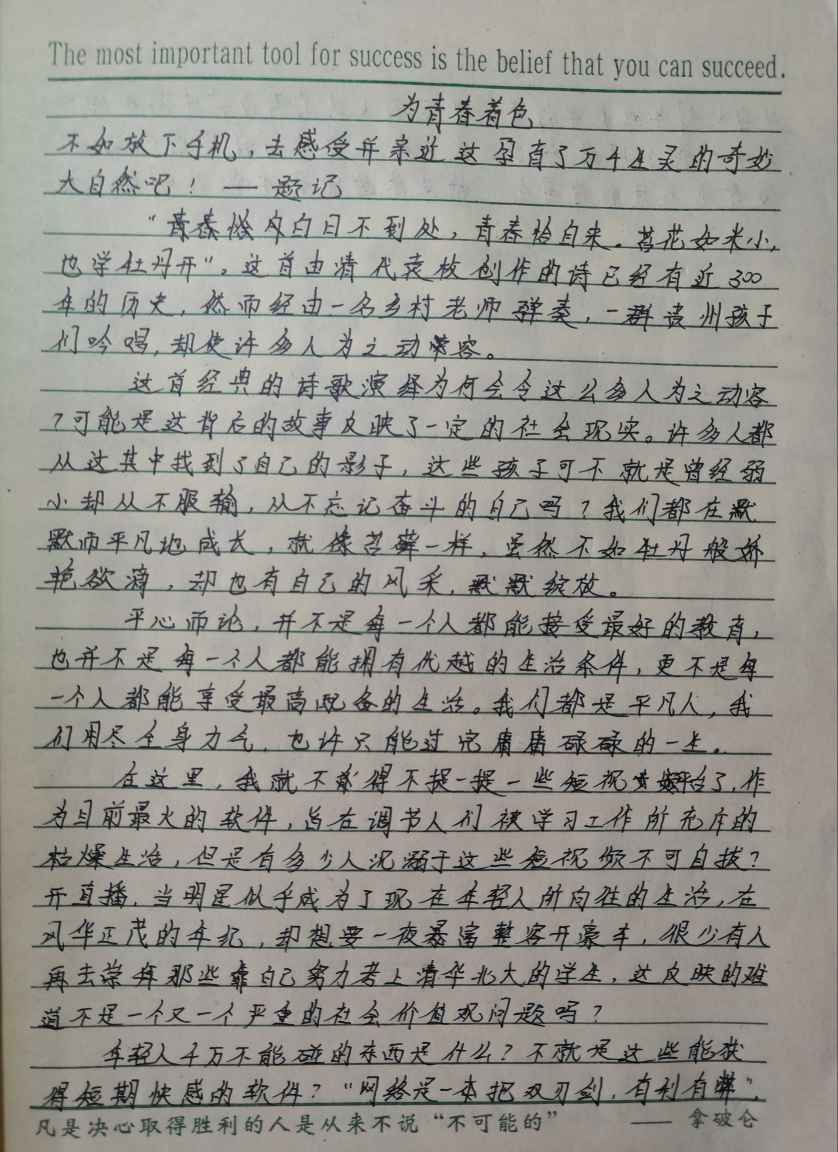 The most important tool for success is the belief that you can succeed.
为青春着色
不如放下手机，去感受并亲近这孕育了万千生灵的奇妙
大自然吧！——题记
“白日不到处，青春恰自来。苔花如米小，
也学牡丹开”。这首由清代袁枚创作的诗已经有近300
年的历史，然而经由一名乡村老师弹奏，一群贵州孩子
们吟唱，却使许多人为之动容。
这首经典的诗歌演绎为何会令这么多人为之动容
？可能是这背后的故事反映了一定的社会现实。许多人都
从这其中找到了自己的影子，这些孩子可不就是曾经弱
小却从不服输，从不忘记奋斗的自己吗？我们都在默
默而平凡地成长，就像苔藓一样，虽然不如牡丹般娇
艳欲滴，却也有自己的风采，默默绽放。
平心而论，并不是每一个人都能接受最好的教育，
也并不是每一个人都能拥有优越的生活条件，更不是每
一个人都能享受最高配备的生活。我们都是平凡人，我
们用尽全身力气，也许只能过完庸庸碌碌的一生。
在这里，我就不得不提一提一些短视频平台了，作
为目前最火的软件，旨在调节人们被学习工作所充斥的
枯燥生活，但是有多少人沉溺于这些短视频不可自拔？
开直播，当明星似乎成为了现在年轻人所向往的生活，在
风华正茂的年纪，却想要一夜暴富整容开豪车，很少有人
再去崇拜那些靠自己努力考上清华北大的学生，这反映的难
道不是一个又一个严重的社会价值观问题吗？
年轻人千万不能碰的东西是什么？不就是这些能获
得短期快感的软件？“网络是一本把双刃剑，有利有弊”，
凡是决心取得胜利的人是从来不说“不可能的” ——拿破仑